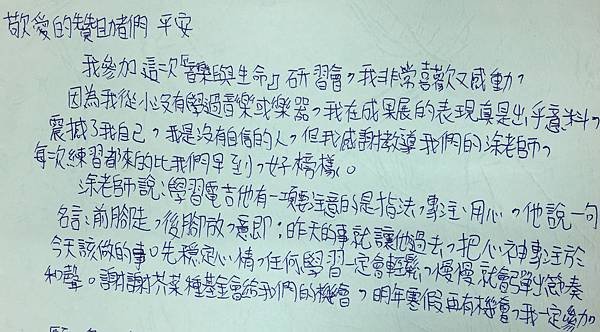 敬愛的贊助者們 平安
我參加這次『音樂與生命』研習會，我非常喜歡又感動，
因為我從小沒有學過音樂或樂器，我在成果展的表現真是出乎意料。
震撼了我自己，我是沒有自信的人，但我感謝教導我們的涂老師，
每次練習都來的比我們早到，好榜樣。
涂老師說：學習電吉他有一項要注意的是指法，專注、用心，他說一句
名言：前腳走，後腳放，意即：昨天的事就讓他過去，把心神專注於
今天該做的事。先穩定心情，任何學習一定會輕鬆，慢慢就會彈出節奏
和聲。謝謝芥菜種基金會給我們的機會，明年寒假再有機會，我一定參加